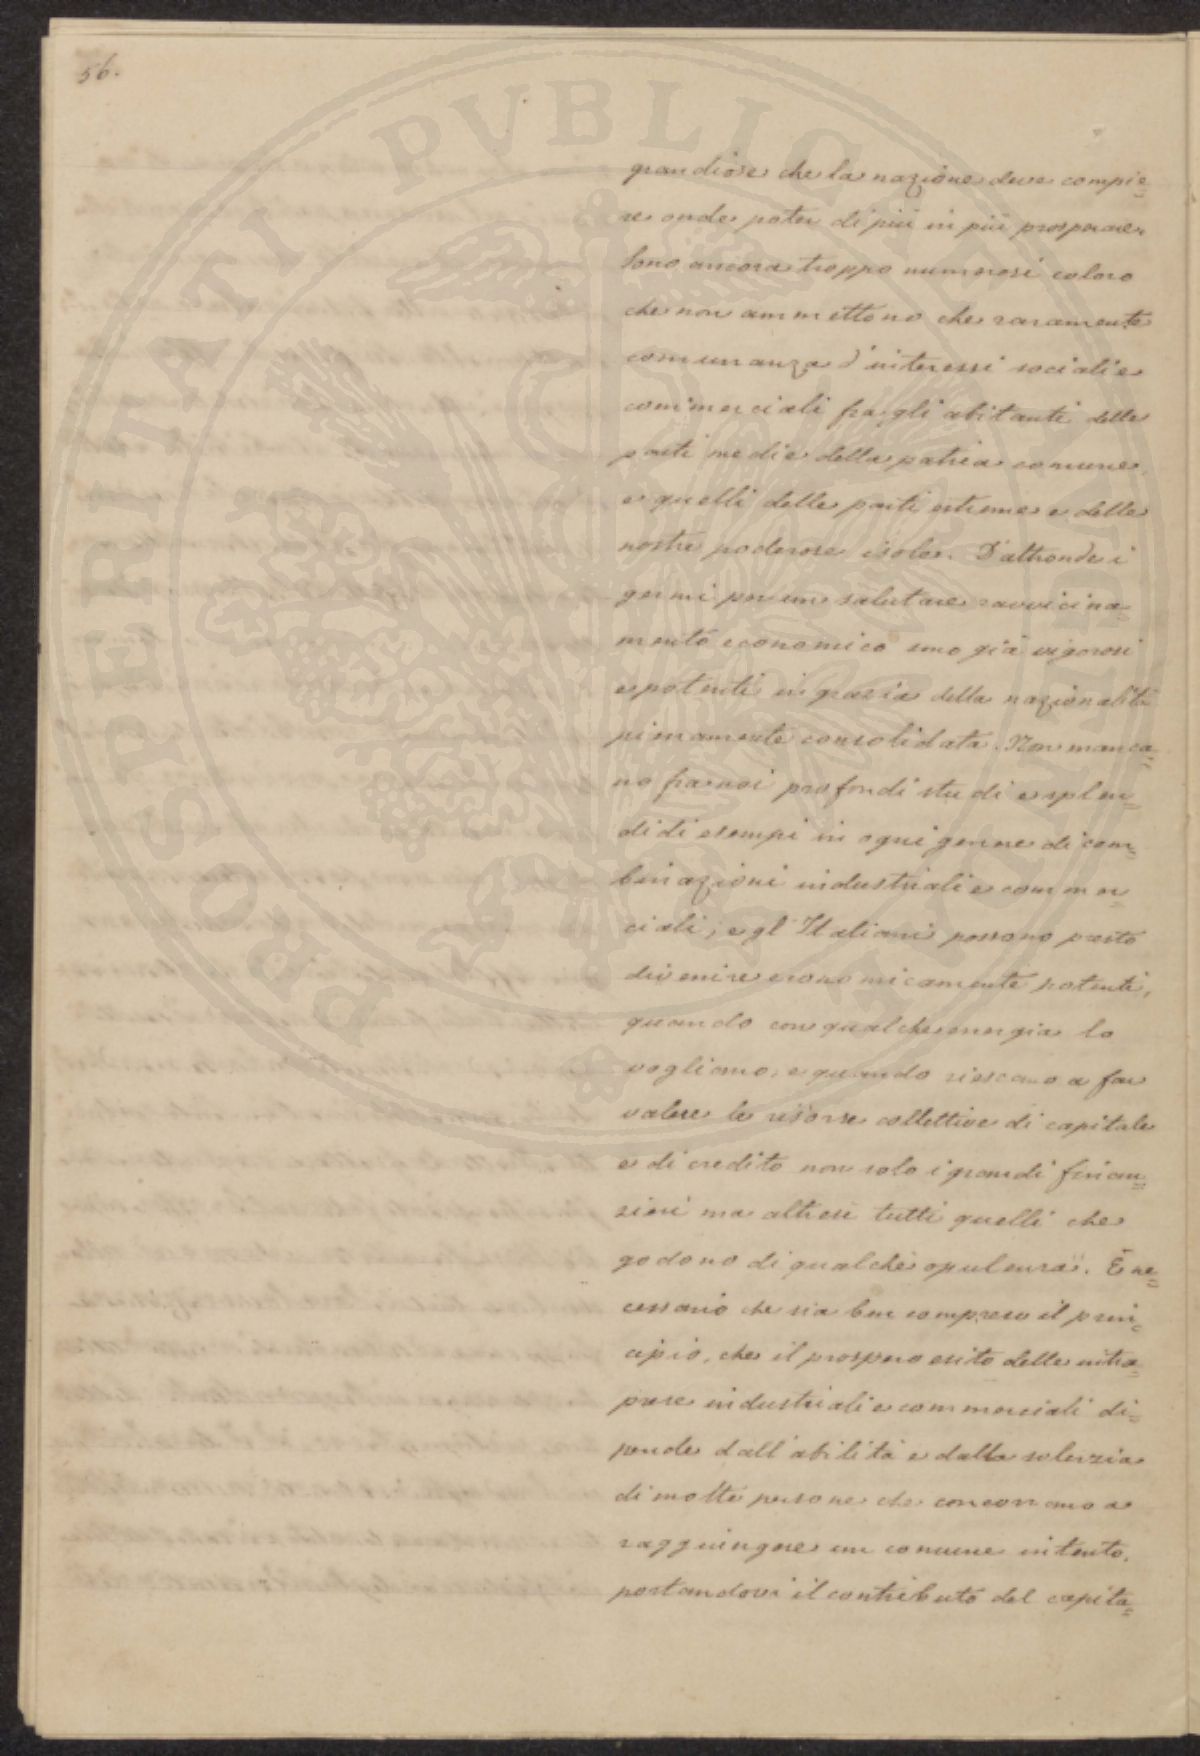 56.
PROSPERITATI PVBLICAE
grandiose che la nazione deve compie=
re onde poter di più in più prosperare.
Sono ancora troppo numerosi coloro
che non ammettono che raramente
comunanza d'interessi sociali e
commerciali fra gli abitanti delle
parti medie della patria comune,
e quelli delle parti estreme e delle
nostre poderose isole. D'altronde i
germi per un salutare ravvicina=
mento economico sono già vigorosi
e potenti in grazia della nazionalità
pienamente consolidata. Non manca=
no fra noi profondi studi e splen=
didi esempi in ogni genere di com=
binazioni industriali e commer=
ciali; e gl'Italiani possono presto
divenire economicamente potenti,
quando con qualche energia lo
vogliano, e quando riescano a far
valere le risorse collettive di capitale
e di credito non solo i grandi finan=
zieri ma altresì tutti quelli che
godono di qualche opulenza. È ne=
cessario che sia ben compreso il prin=
cipio, che il prospero esito delle intra=
prese industriali e commerciali di=
pende dall'abilità e dalla solerzia
di molte persone che concorrano a
raggiungere un comune intento,
portandovi il contributo del capita=